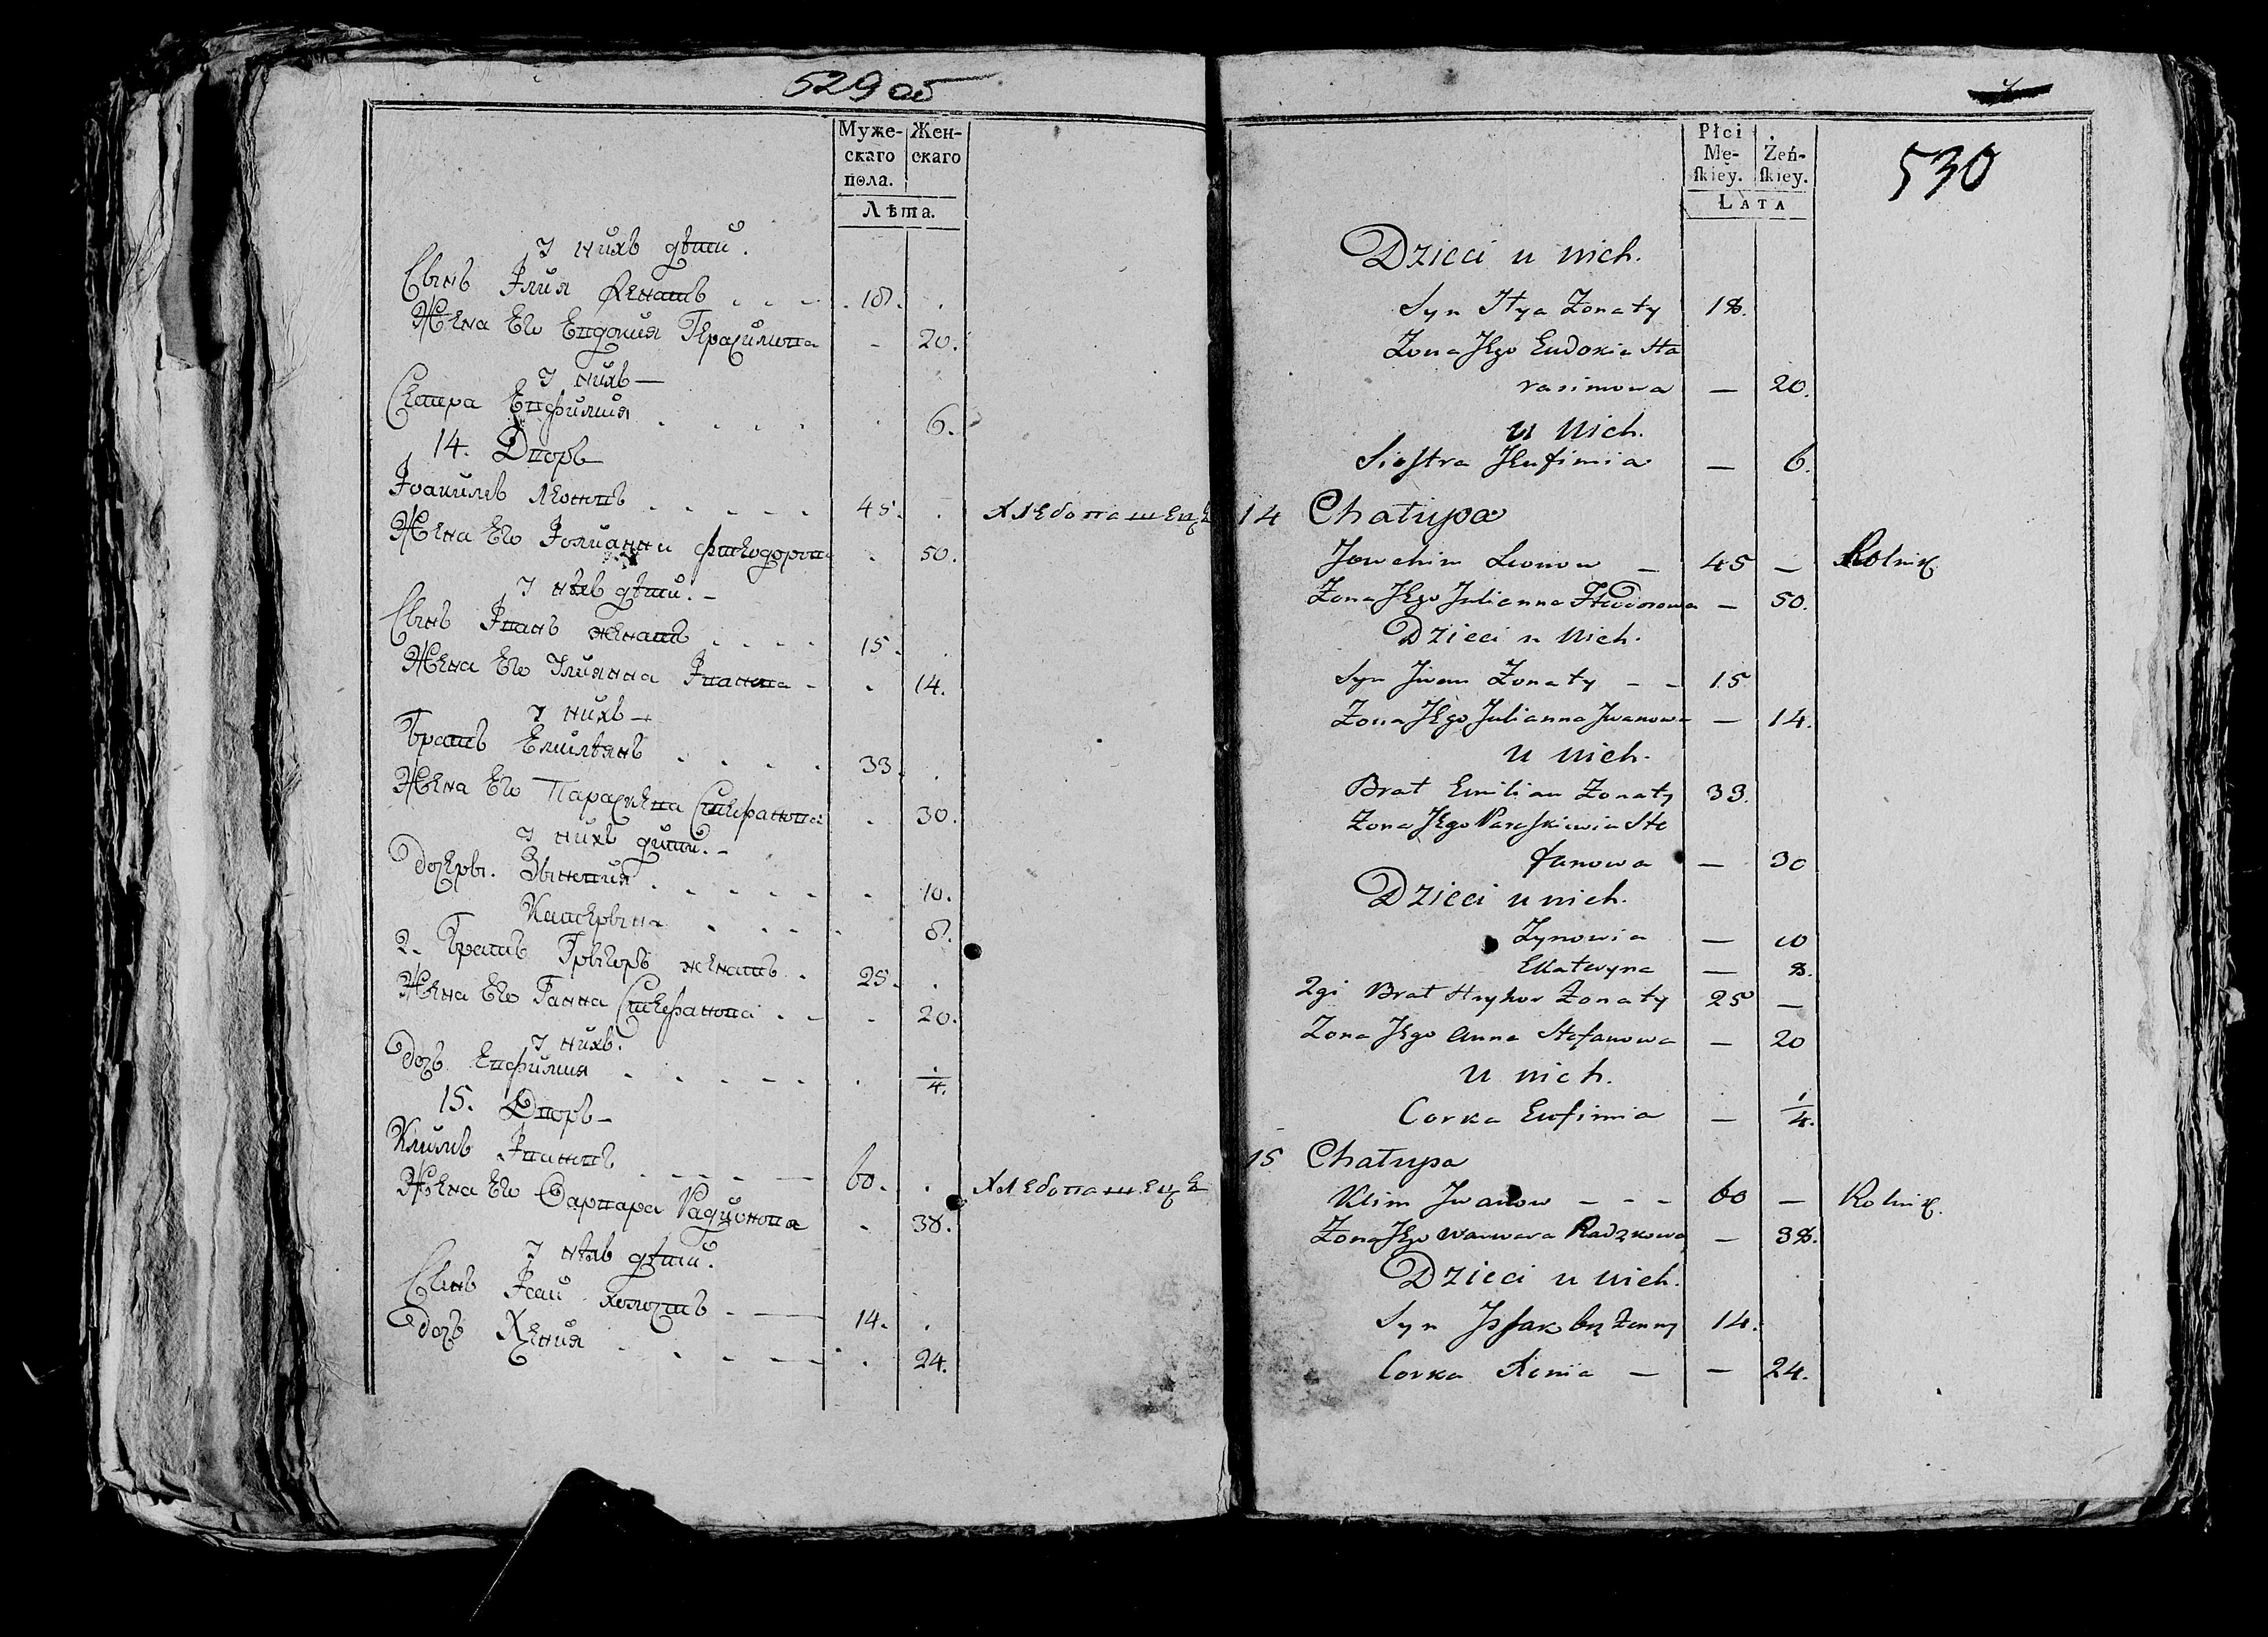 529 об
Муже-
скаго
пола.
Жен-
скаго
Лѣта.
У нихъ дѣти.
Сынъ Илия женатъ . . . 18.
Жена Его Евдокия Герасимова - 20.
У нихъ —
Сестра Евфимия . . . . 6.
14. Дворъ
Иоакимъ Леоновъ . . . . . 45. . Хлебопашецъ
Жена Его Иолианна Фтеодорова . 50.
У нихъ дѣти. -
Сынъ Иванъ женатъ . . . . 15.
Жена Его Улиянна Иванова - . 14.
У нихъ —
Братъ Емилиянъ . . . . 33.
Жена Его Параскева Стефанова . 30.
У нихъ дѣти. -
Дочеры. Зыновия . . . . . - 10.
Катерына . . . . 8.
2. Братъ Грыгоръ женатъ . 25.
Жена Его Ганна Стефанова . - - 20.
У нихъ.
Дочъ Евфимия . . . . - . 1/4.
15. Дворъ —
Климъ Ивановъ . - - . — 60. . Хлебопашецъ
Жена Его Варвара Радионова - 38.
У нихъ дѣти.
Сынъ Исаи холостъ . — 14. .
Дочъ Хения . . - - — . 24.
530
Płci
Mę-
skiey.
Żeń-
skiey.
LATA
Dzieci u nich.
Syn Ilya Zonaty 18.
Zona Jego Eudoxia Ha
rasimowa — 20.
u nich.
Siostra Jeufimia — 6.
14 Chałupa
Jowchim Leonow — 45 — Rolnik
Zona Jego Julianna Fteodorowa — 50.
Dzieci u nich.
Syn Jwan Zonaty — — 15
Zona Jego Julianna Jwanowa — 14.
u nich.
Brat Emilian Zonaty 33.
Zona Jego Paraskiewia Ste
fanowa — 30
Dzieci u nich.
Zynowia — 10
Kateryna — 8.
2gi Brat Hryhor Zonaty 25 —
Zona Jego Anna Stefanowa — 20
u nich.
Corka Eufimia — 1/4.
15 Chałupa
Klim Jwanow — — — 60 — Rolnik.
Zona Jego Warwara — 38.
Dzieci u nich.
Syn Jssak 14.
Corka Xenia — — 24.